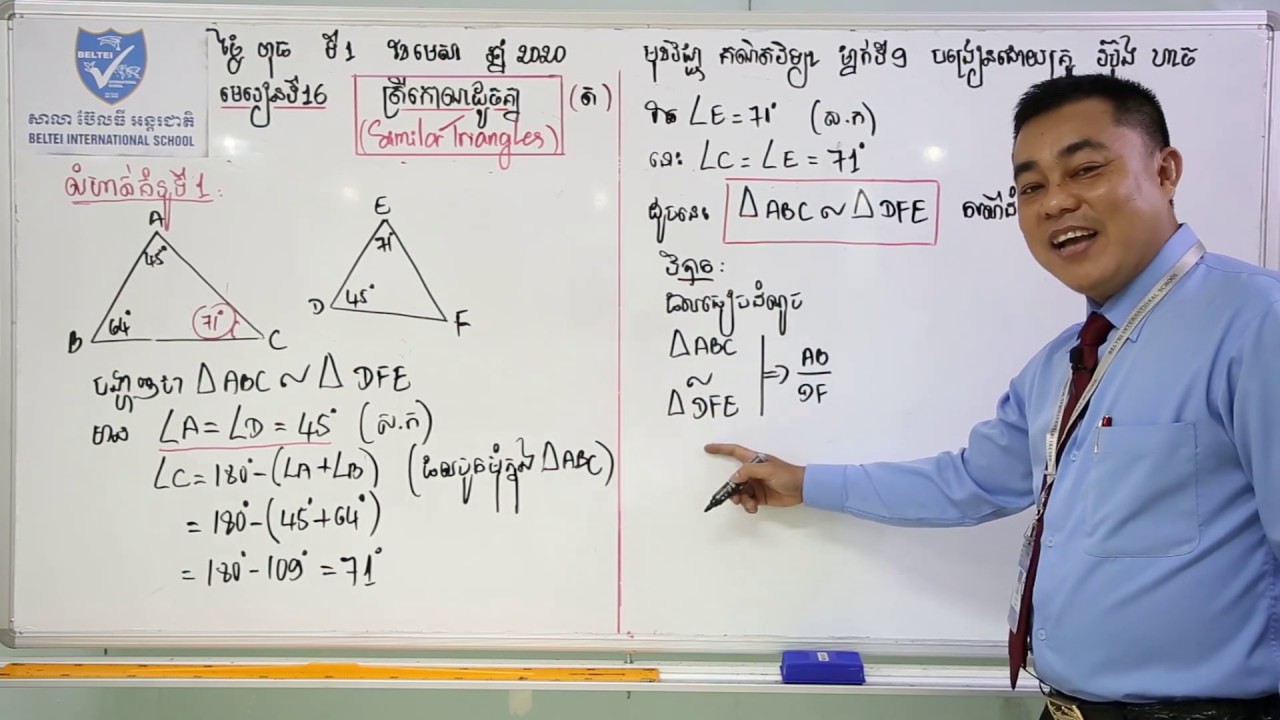 BELTEI
សាលា ប៊ែលធី អន្តរជាតិ
BELTEI INTERNATIONAL SCHOOL
ថ្ងៃ ពុធ ទី1 ខែមេសា ឆ្នាំ 2020
មេរៀនទី16
ត្រីកោណដូចគ្នា
(ត)
(Similar Triangles)
លំហាត់គំរូទី1:
A
45°
B
64°
71°
C
E
71°
D
45°
F
បង្ហាញថា Δ ABC ~ Δ DFE
មាន ∠A = ∠D = 45° (ស.ក)
∠C = 180° - (∠A + ∠B) (ផលបូកមុំក្នុងΔABC)
= 180° - (45° + 64°)
= 180° - 109° = 71°
មុខវិជ្ជា គណិតវិទ្យា ថ្នាក់ទី9 បង្រៀនដោយគ្រូ
ដោយ ∠E = 71° (ស.ក)
នោះ ∠C = ∠E = 71°
ដូចនេះ Δ ABC ~ Δ DFE
វិបាក:
ផលធៀបដំណូច
Δ ABC
~
Δ DFE
=> AB/DF
BELTEI INTERNATIONAL SCHOOL